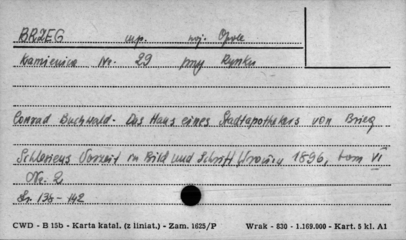 BRZEG m.p. woj. Opole
Kamienica Nr. 29 przy Rynku
Conrad Buchwald - Das Haus eines Stadtapothekers von Brieg
Schlesiens Vorzeit in Bild und Schrift Wrocław 1896, tom VI
Nr. 2
Str. 134 - 142
CWD - B 15b - Karta katal. (z liniat.) - Zam. 1625/P Wrak - 830 - 1.169.000 - Kart. 5 kl. A1